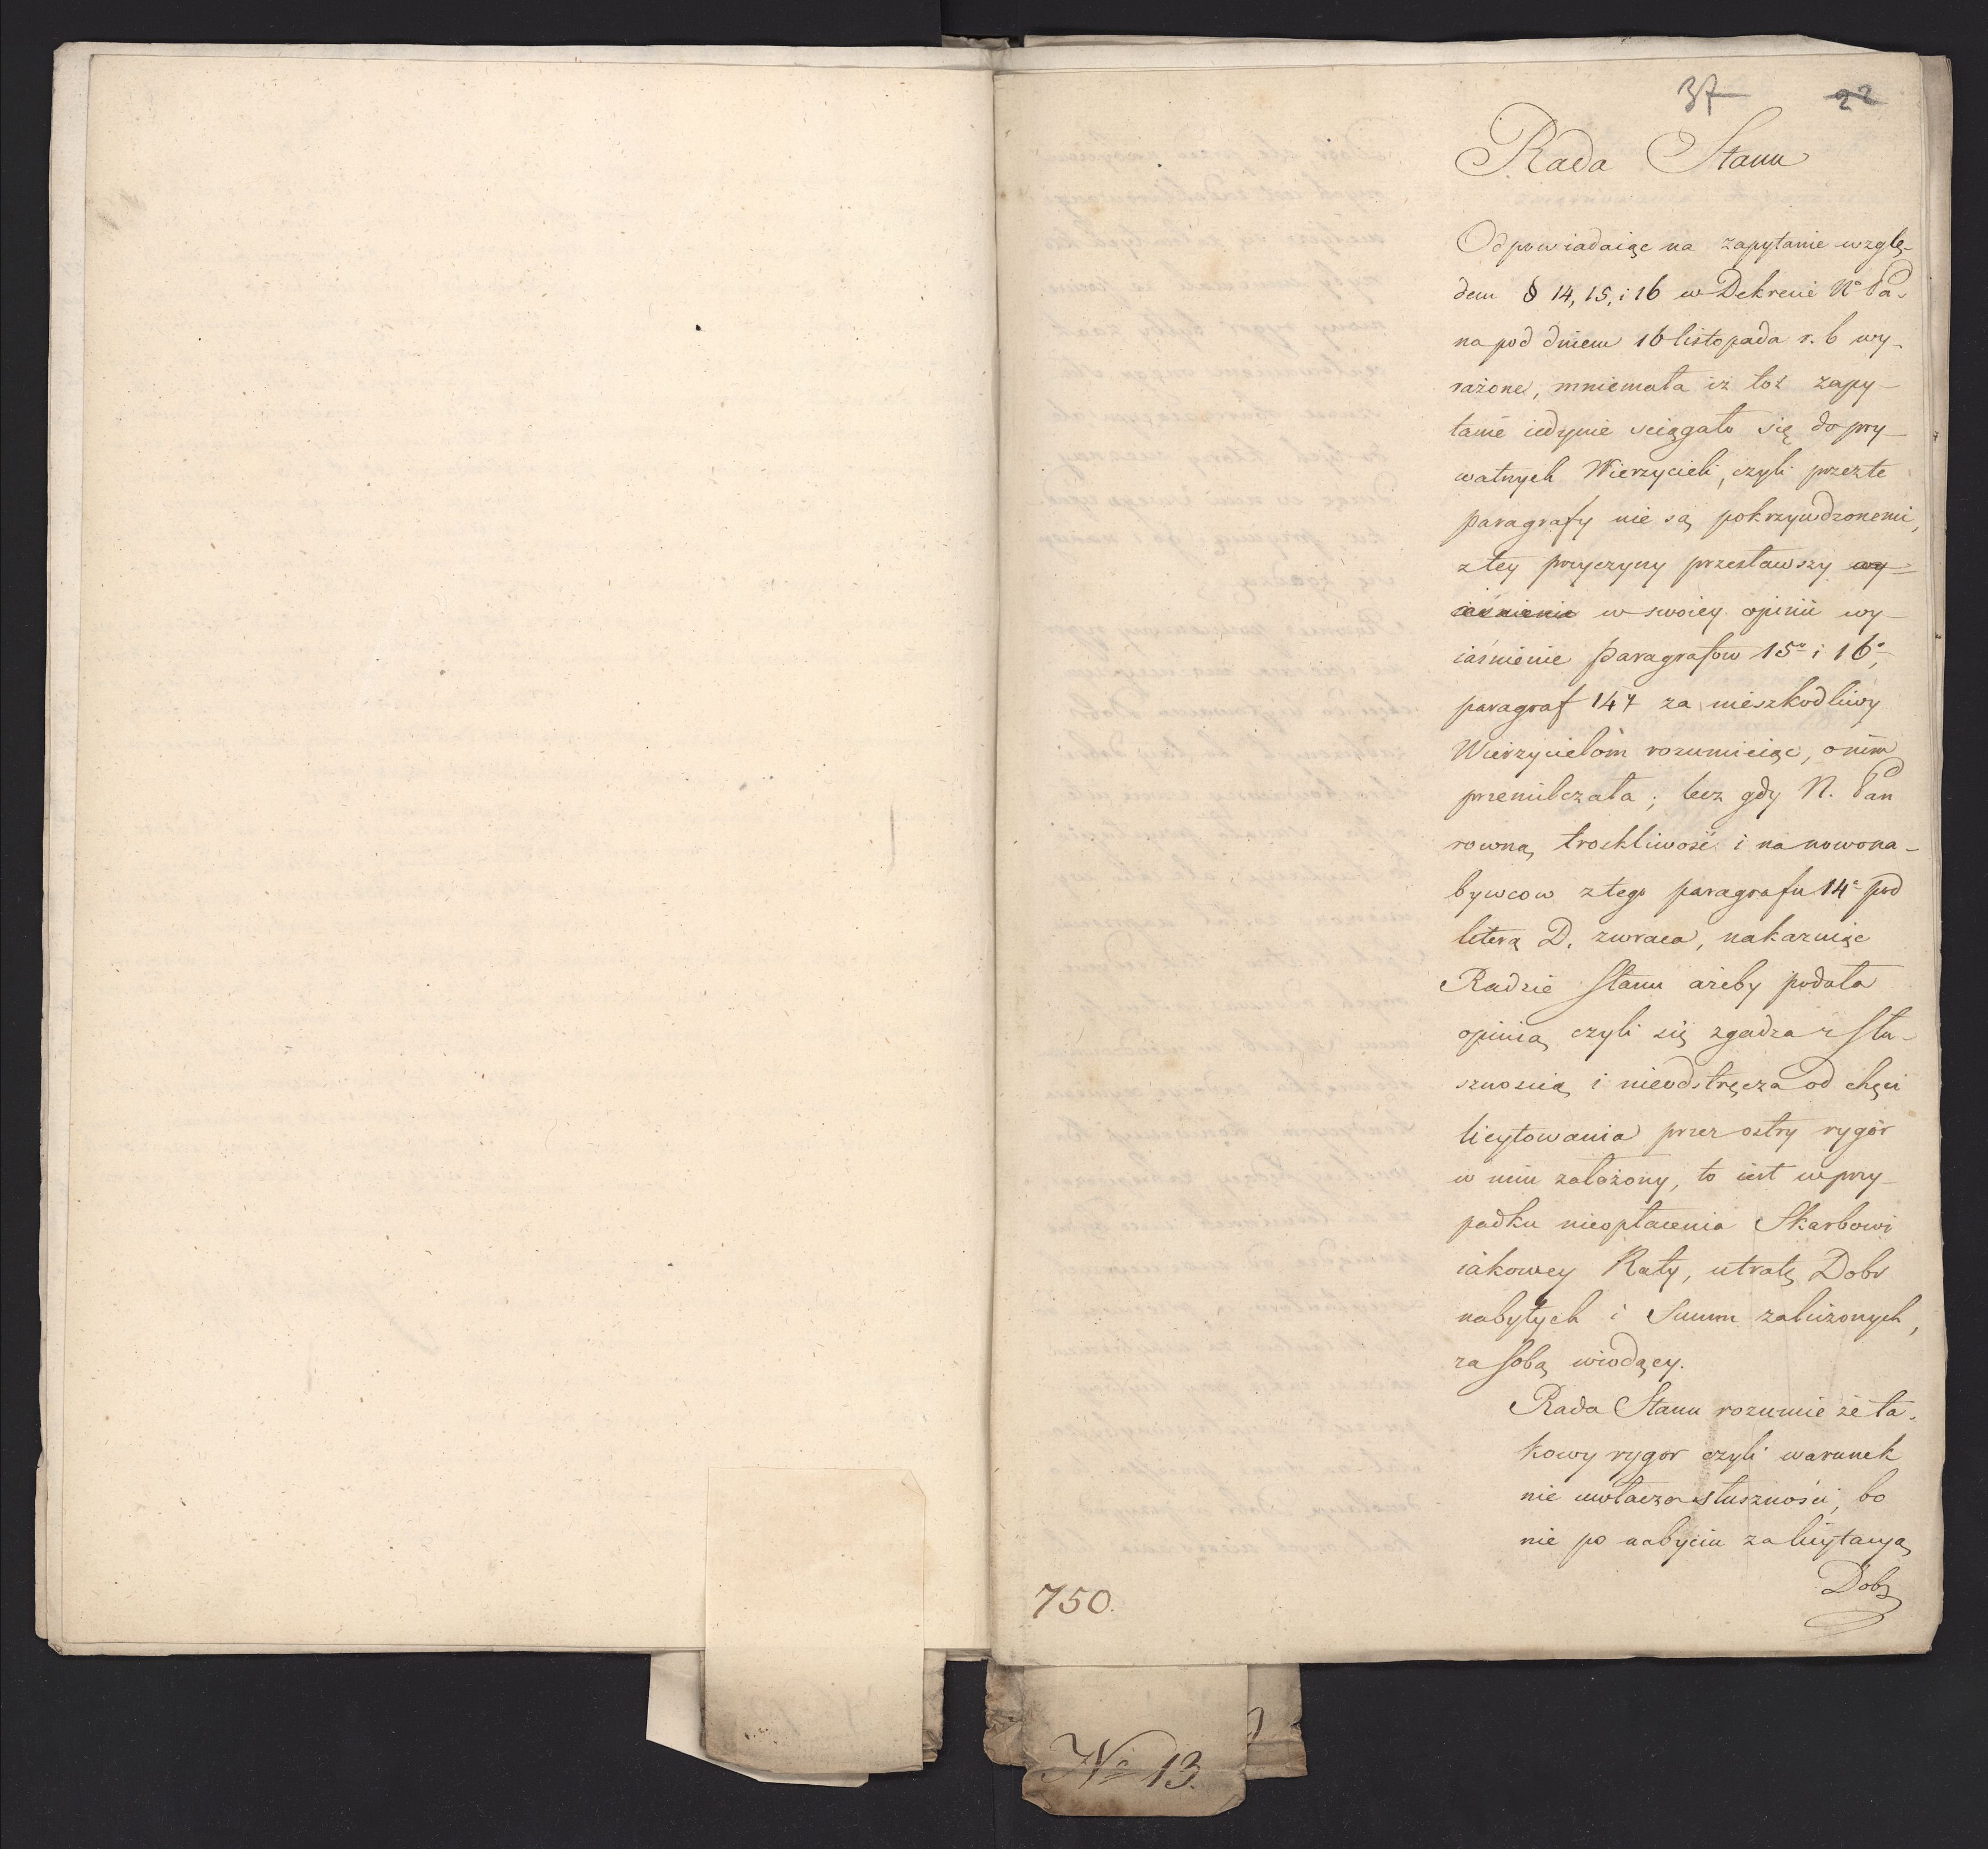 37 22
Rada Stanu
Odpowiadaiąc na zapytanie wzglę-
dem § 14, 15, i 16 w Dekrecie No Pa-
na pod dniem 16 listopada r. b wy-
rażone, mniemała iż toż zapy-
tanie iedynie sciągało się do pry-
watnych Wierzycieli, czyli przez te
paragrafy nie są pokrzywdzonemi,
z tey przyczyny przesławszy wy-
iaśnienie w swoiey opinii wy-
iaśnienie paragrafow 15o i 16o,
paragraf 147 za nieszkodliwy
Wierzycielom rozumieiąc, o nim
przemilczała; lecz gdy N. Pan
rowną troskliwość i na nowona-
bywcow z tego paragrafu 14o pod
literą D. zwraca, nakazuiąc
Radzie Stanu ażeby podała
opinią czyli się zgadza z słu-
sznością i nieodstręcza od chęci
licytowania przez ostry rygór
w nim założony, to iest w przy-
padku nieopłacenia Skarbowi
iakowey Raty, utratę Dobr
nabytych i Summ zaliczonych,
za sobą wiodący.
Rada Stanu rozumie że ta-
kowy rygor czyli warunek
nie uwłacza słuszności, bo
nie po nabyciu za licytacyą
Dobr
750.
No 13.